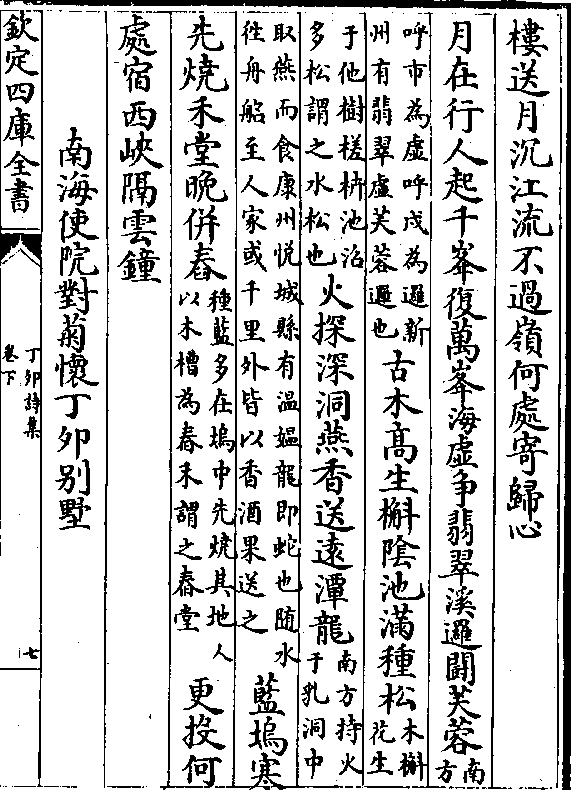 樓送月沉江流不過嶺何處寄歸心
月在行人起千峯復萬峯海虚争翡翠溪邏鬭芙蓉南方
呼市為虚呼戍為邏新
州有翡翠虚芙蓉邏也
古木髙生槲陰池滿種松木槲
花生
于他樹槎枿池沿
多松謂之水松也
火探深洞燕香送遠潭龍南方持火
于乳洞中
取燕而食康州悦城縣有温媪龍即蛇也随水
徃舟船至人家或千里外皆以香酒果送之
藍塢寒
先燒禾堂晚併舂
種藍多在塢中先燒其地人
以木槽為舂禾謂之舂堂
更投何
處宿西峽隔雲鐘
南海使院對菊懷丁卯别墅
欽定四庫全書
丁卯詩集
卷下
七